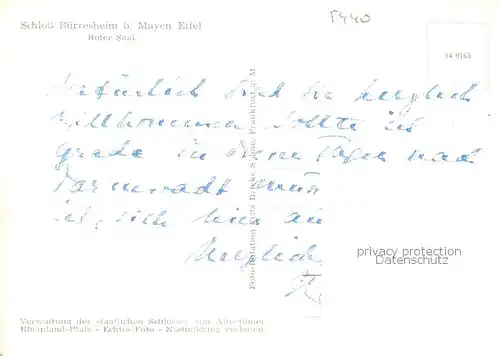 5440
Schloß Bürresheim b. Mayen Eifel
Roter Saal
54 9165
Natürlich sind Sie herzlich
willkommen. Sollte ich
grade in diesen Tagen nach
Darmstadt
ich, hier an
Herzlich
Foto-Rotation Fritz Frankfurt a. M
privacy protection
Datenschutz
Verwaltung der staatlichen Schlösser und Altertümer
Rheinland-Pfalz - Echtes Foto - Nachbildung verboten.